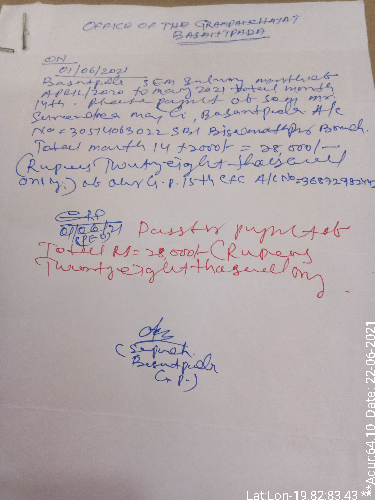 OFFICE OF THE GRAMPANCHAYAT
BASANTPADA
ON
01/06/2021
Basantpada SEM Salary month of
APRIL/2020 to May 2021 total month
14th. Please payment of SEM Mr.
Surendra Basantpada A/c
No = 30574063022 SBI Branch.
Total month 14 × 2000/- = 28,000/-
(Rupees Twenty eight thousand
only.) of our G.P. 15th CFC A/C No =
01/06/21
Pass for payment of
Total Rs = 28,000/- (Rupees
Twenty eight thousand only
(
Basantpada
G.P.)
Lat:Lon-19.82:83.43 **Acur:64.10 Date: 22-06-2021